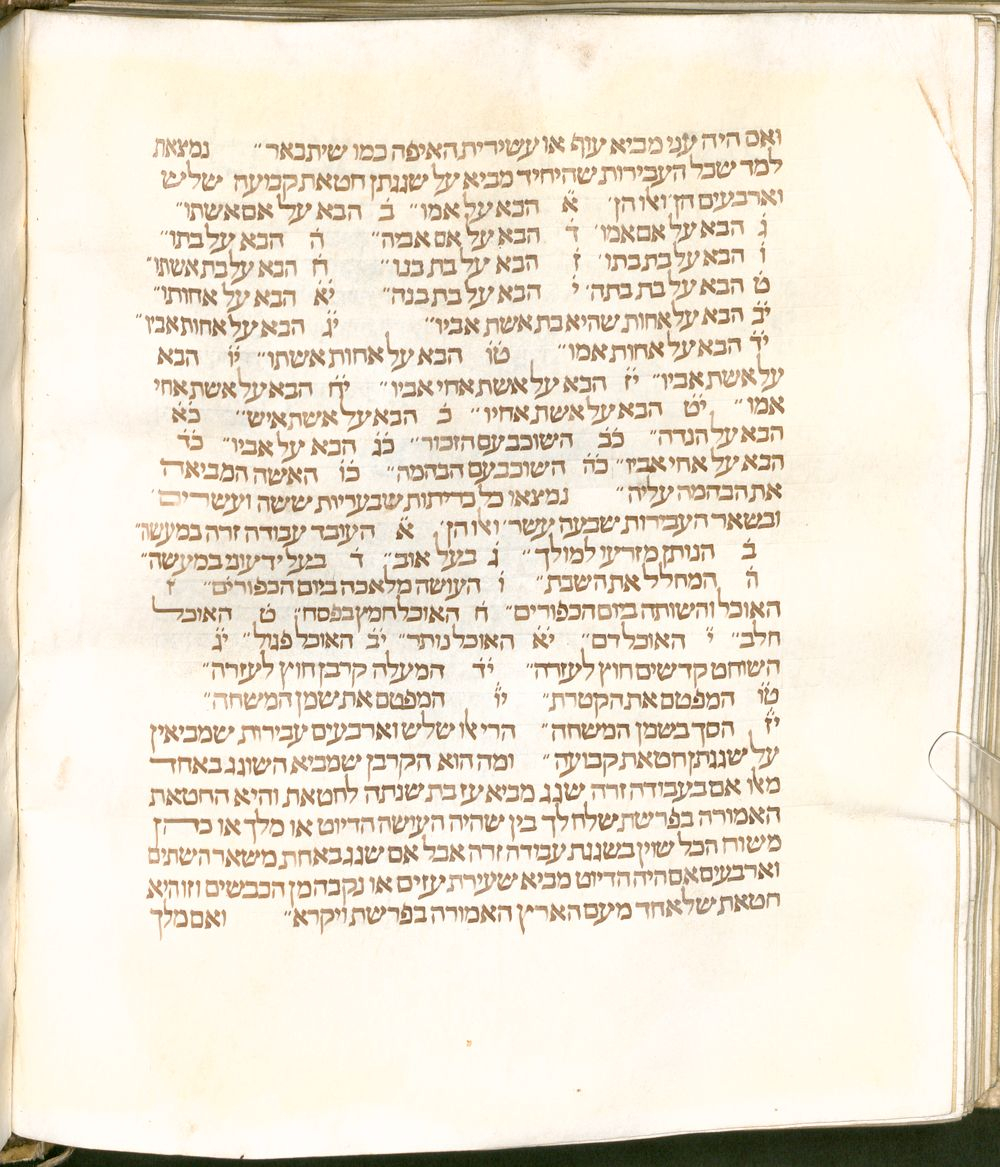 ואם היה עני מביא עוף או עשירית האיפה כמו שיתבאר״ נמצאת
למד שכל העבירות שהיחיד מביא על שגגתן חטאת קבועה שלש
וארבעים הן ואלו הן׳ א הבא על אמו״ ב הבא על אם אשתו״
ג הבא על אם אמו׳ ד הבא על אם אמה״ ה הבא על בתו״
ו הבא על בת בתו׳ ז הבא על בת בנו״ ח הבא על בת אשתו״
ט הבא על בת בתה׳ י הבא על בת בנה״ יא הבא על אחותו״
יב הבא על אחות שהיא בת אשת אביו״ יג הבא על אחות אביו״
יד הבא על אחות אמו״ טו הבא על אחות אשתו״ יו הבא
על אשת אביו״ יז הבא על אשת אחי אביו״ יח הבא על אשת אחי
אמו״ יט הבא על אשת אחיו״ כ הבא על אשת איש״ כא
הבא על הנדה״ כב השוכב עם הזכור״ כג הבא על אביו״ כד
הבא על אחי אביו״ כה השוכב עם הבהמה״ כו האשה המביאה
את הבהמה עליה״ נמצאו כל כריתות שבעריות ששה ועשרים׳
ובשאר העבירות שבעה עשר׳ ואלו הן׳ א העובד עבודה זרה במעשה״
ב הנותן מזרעו למולך״ ג בעל אוב״ ד בעל ידעוני במעשה״
ה המחלל את השבת״ ו העושה מלאכה ביום הכפורים״ ז
האוכל והשותה ביום הכפורים״ ח האוכל חמץ בפסח״ ט האוכל
חלב״ י האוכל דם״ יא האוכל נותר״ יב האוכל פגול״ יג
השוחט קדשים חוץ לעזרה״ יד המעלה קרבן חוץ לעזרה״
טו המפטם את הקטרת״ יו המפטם את שמן המשחה״
יז הסך בשמן המשחה״ הרי אלו שלש וארבעים עבירות שמביאין
על שגגתן חטאת קבועה״ ומה הוא הקרבן שמביא השוגג באחד
מאלו אם בעבודה זרה שגג מביא עז בת שנתה לחטאת והיא החטאת
האמורה בפרשת שלח לך בין שהיה העושה הדיוט או מלך או כהן
משוח הכל שוין בשגגת עבודה זרה אבל אם שגג באחת משאר השתים
וארבעים אם היה הדיוט מביא שעירת עזים או נקבה מן הכבשים וזו היא
חטאת של אחד מעם הארץ האמורה בפרשת ויקרא״ ואם מלך